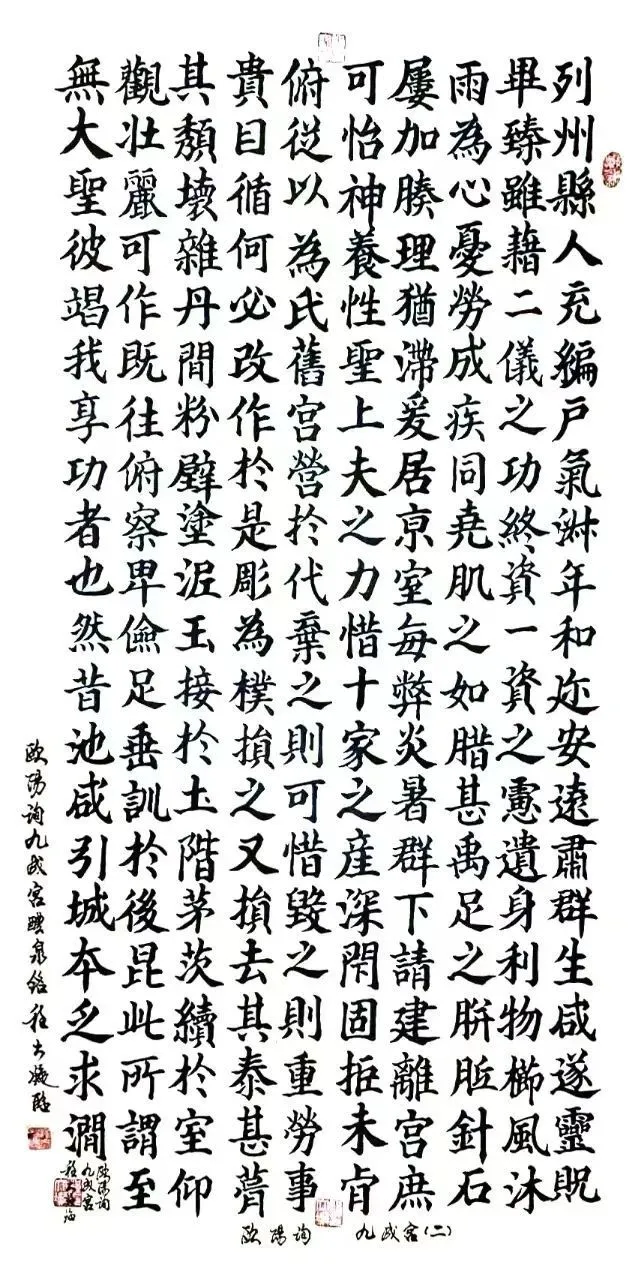 列州縣人充編戶氣淑年和迩安遠肅群生咸遂靈貺
畢臻雖藉二儀之功終資一資之憲遺身利物櫛風沐
雨為心憂勞成疾同堯肌之如腊甚禹足之胼胝針石
屢加腠理猶滯爰居京室每弊炎暑群下請建離宮庶
可怡神養性聖上夫之力惜十家之產深閉固拒未肯
俯從以為氏舊宮營於代棄之則可惜毀之則重勞事
貴曰循何必改作於是彫為樸損之又損去其泰甚葺
其頹壞雜丹間粉壁塗泥玉接於土階茅茨續於室仰
觀壯麗可作既往俯察卑儉足垂訓於後昆此所謂至
無大聖彼竭我享功者也然昔池咸引城本乏求澗
歐陽詢九成宮醴泉銘
歐陽詢
九成宮
歐陽詢 九成宮(二)